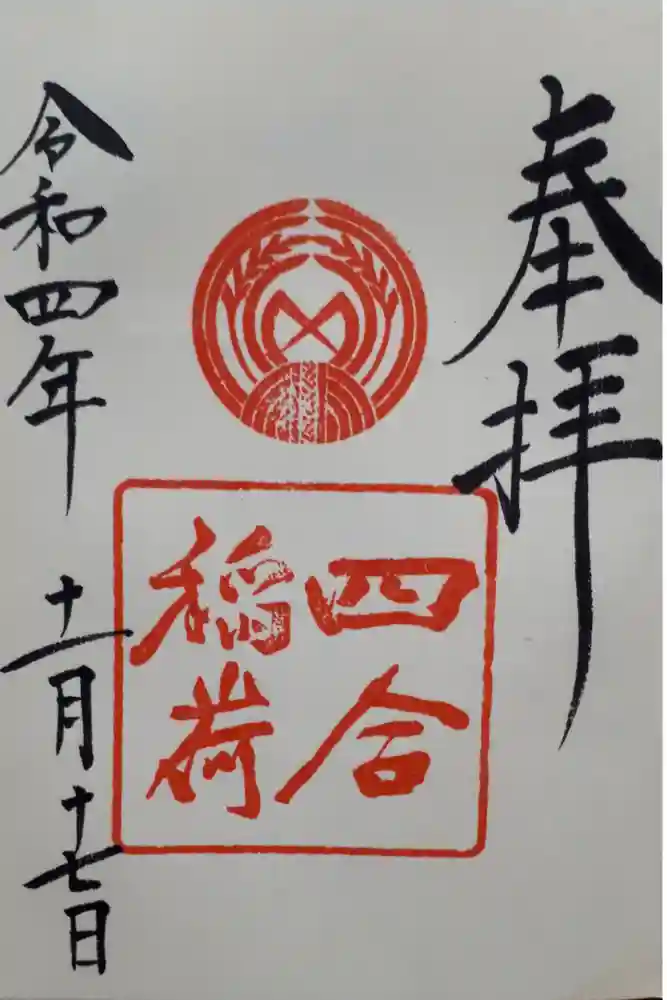 奉拝
四合
稲荷
令和四年 十一月 十七日